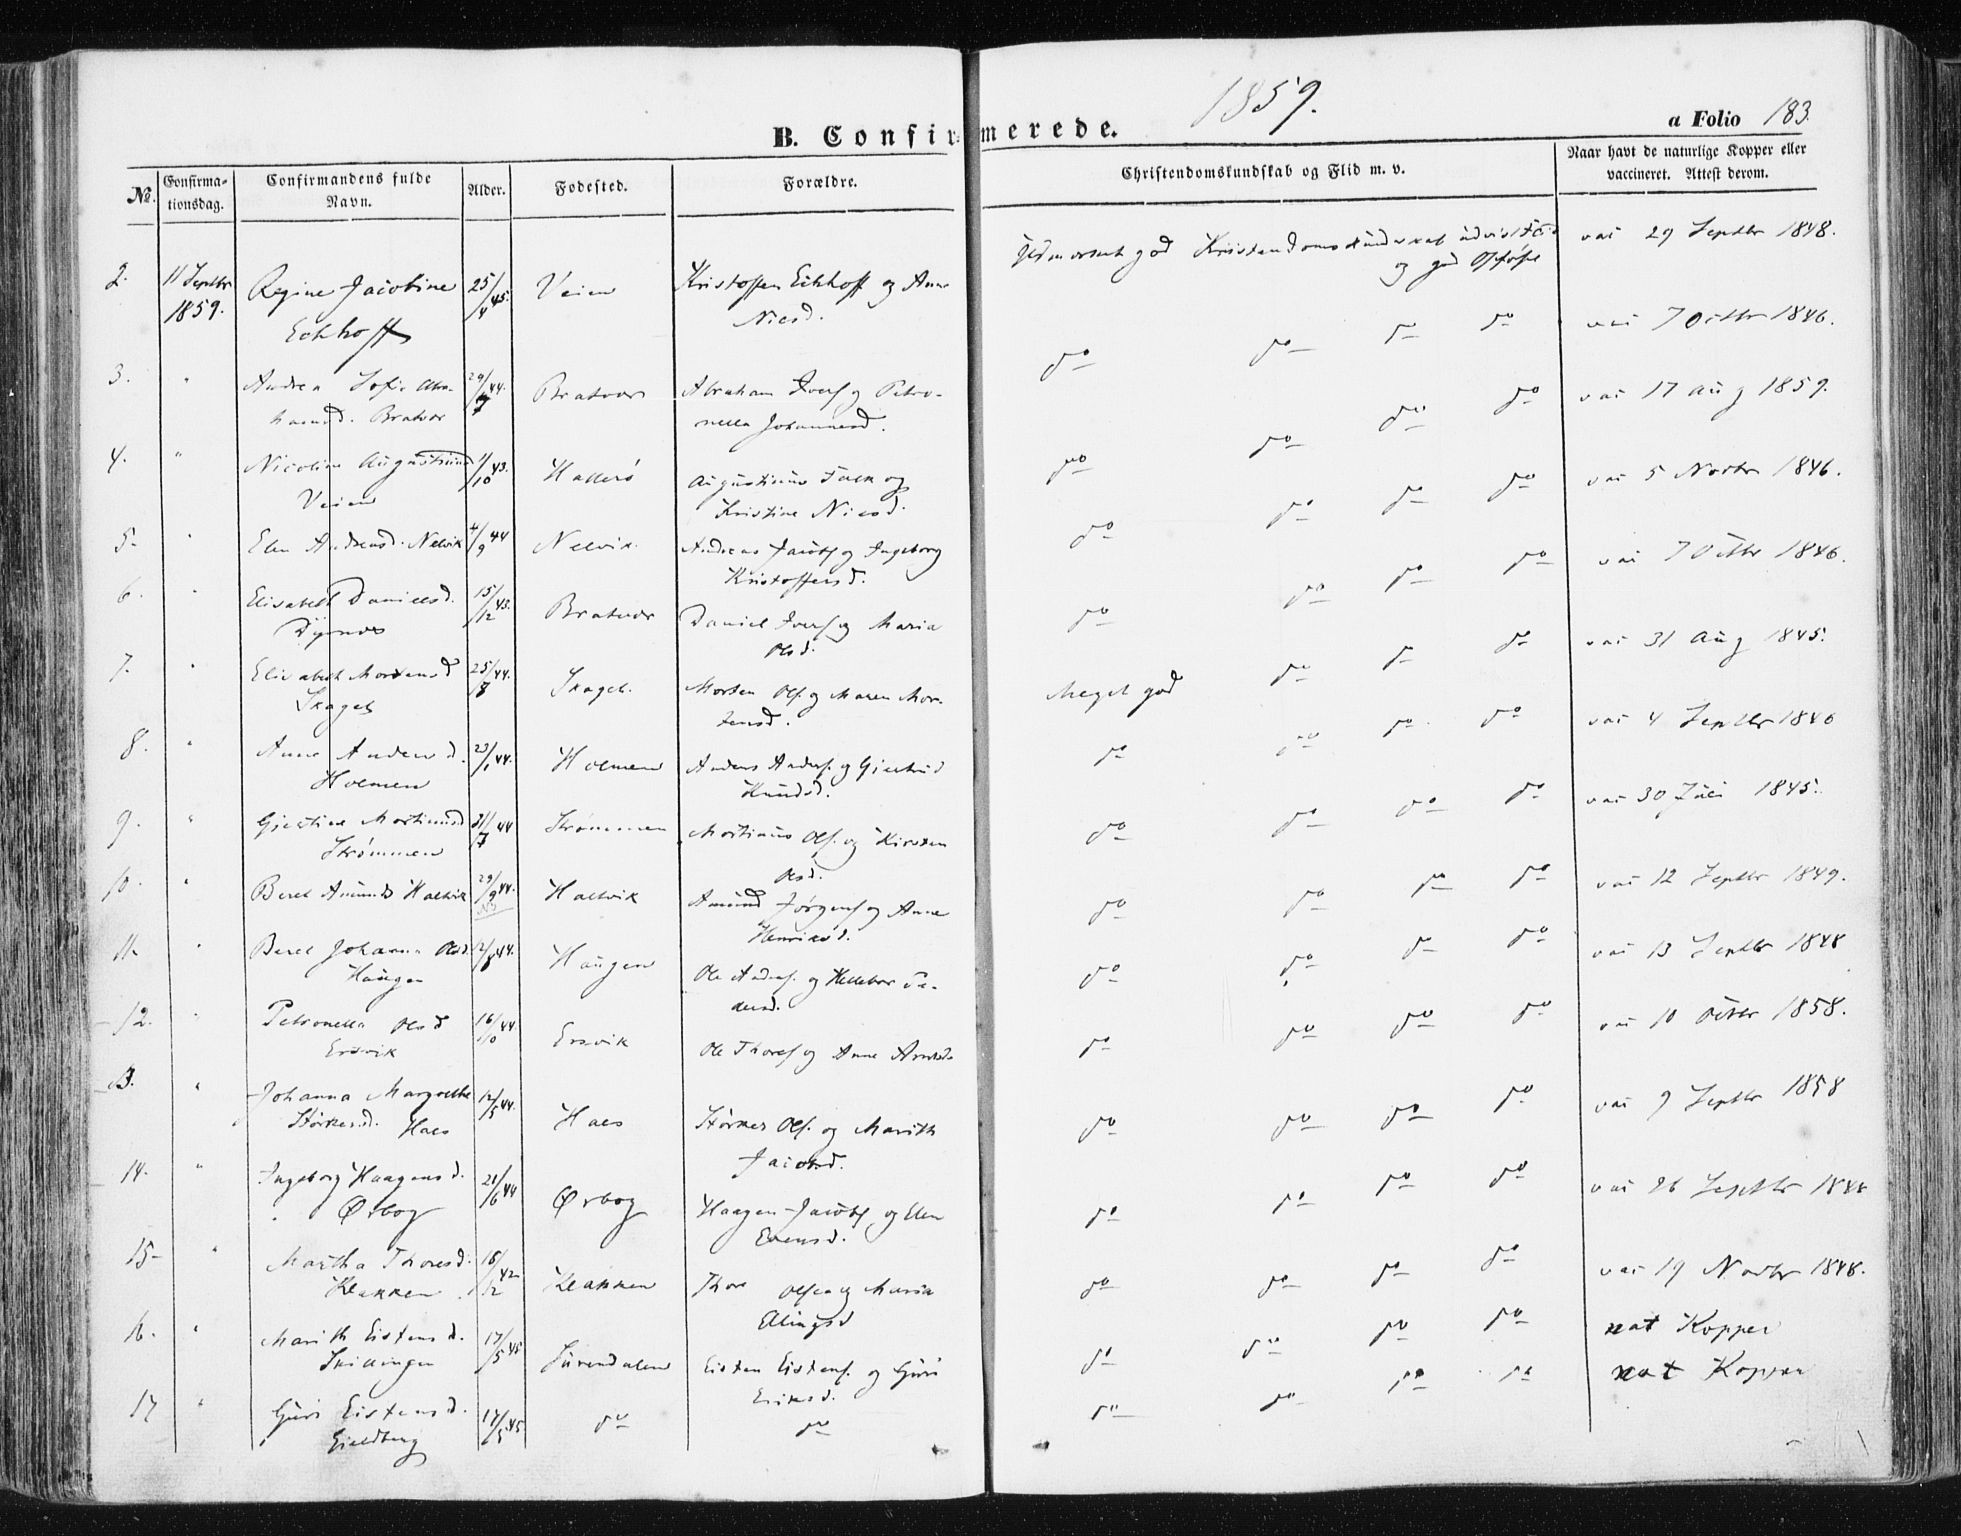 1859.
B. Confirmerede.
a Folio 183.
No. Confirmationsdag. Confirmandens fulde Navn. Alder. Fødested. Forældre. Christendomskundskab og Flid m. v. Naar havt de naturlige Kopper eller vaccineret. Attest derom.
2. 11 Septbr 1859. Regine Jacobine Eckhoff 25/4 45. Veien Kristoffen Eckhoff og Anne Nilsd. Udmærket god Kristendomskundskab udvist Flid og god Opførs vac 29 Septbr 1848.
3. " Andrea Sofie Abrahamsd. Bratvær 29/7 44. Bratvær Abraham Iversf og Petronella Johannesd. do do do do vac 7 Octbr 1846.
4. " Nicoline Augustinusd Veien 1/10 43. Hallerø Augustinus Falk og Kristine Nilsd. do do do do vac 17 Aug 1859.
5. " Elen Andreasd. Nelvik 4/9 44 Nelvik. Andreas Jacobsf og Ingeborg Kristoffersd. do do do do vac 5 Novbr 1846.
6. " Elisabeth Danielsd. Dyrnæs 15/12 43. Bratvær Daniel Iversf og Maria Olsd. do do do do vac 7 Octbr 1846.
7. " Elisabeth Mortensd Skagel 25/8 44. Skagel. Morten Olsf. og Maren Mortensd. Meget god do do do vac 31 Aug 1845.
8. " Anne Andersd. Holmen 23/1 44. Holmen Anders Andersf. og Gjertrud Knudsd. do do do do vac 4 Septbr 1846
9. " Gjertine Martinusd Strømmen 31/7 44 Strømmen Martinus Olsf. og Kirsten Olsd. do do do do vac 30 Juli 1845.
10. " Beret Amunds Halsvik 29/9 44. Halsvik Amund Jørgensf og Anne Henriksd. do do do do vac 12 Septbr 1849.
11. " Beret Johanna Olsd. Haugen 12/8 44. Haugen Ole Andersf. og Hellebor Pedersd. do do do do vac 13 Septbr 1848
12. " Petronella Olsd Ersvik 16/10 44. Ersvik Ole Thoresf og Anne Arntsd. do do do do vac 10 Octbr 1858.
13. " Johanna Margrethe Størkersd. Hals 12/5 44. Hals Størker Olsf. og Marith Jacobsd. do do do do vac 9 Septbr 1858
14. " Ingeborg Haagensd. Ørbog 21/6 44 Ørbog Haagen Jacobsf og Elen Evensd. do do do do vac 26 Septbr 1848
15. " Martha Thoresd. Klakken 16/12 42 Klakken Thore Olsen og Maria Ellingsd do do do do vac 19 Novbr 1848.
16. " Marith Eistensd. Skillingen 17/5 45 Surendalen Eisten Eistensf. og Guri Eriksd. do do do do nat Kopper
17 " Guri Eistensd. Gjeldberg 17/5 45 do do do do do do nat Kopper